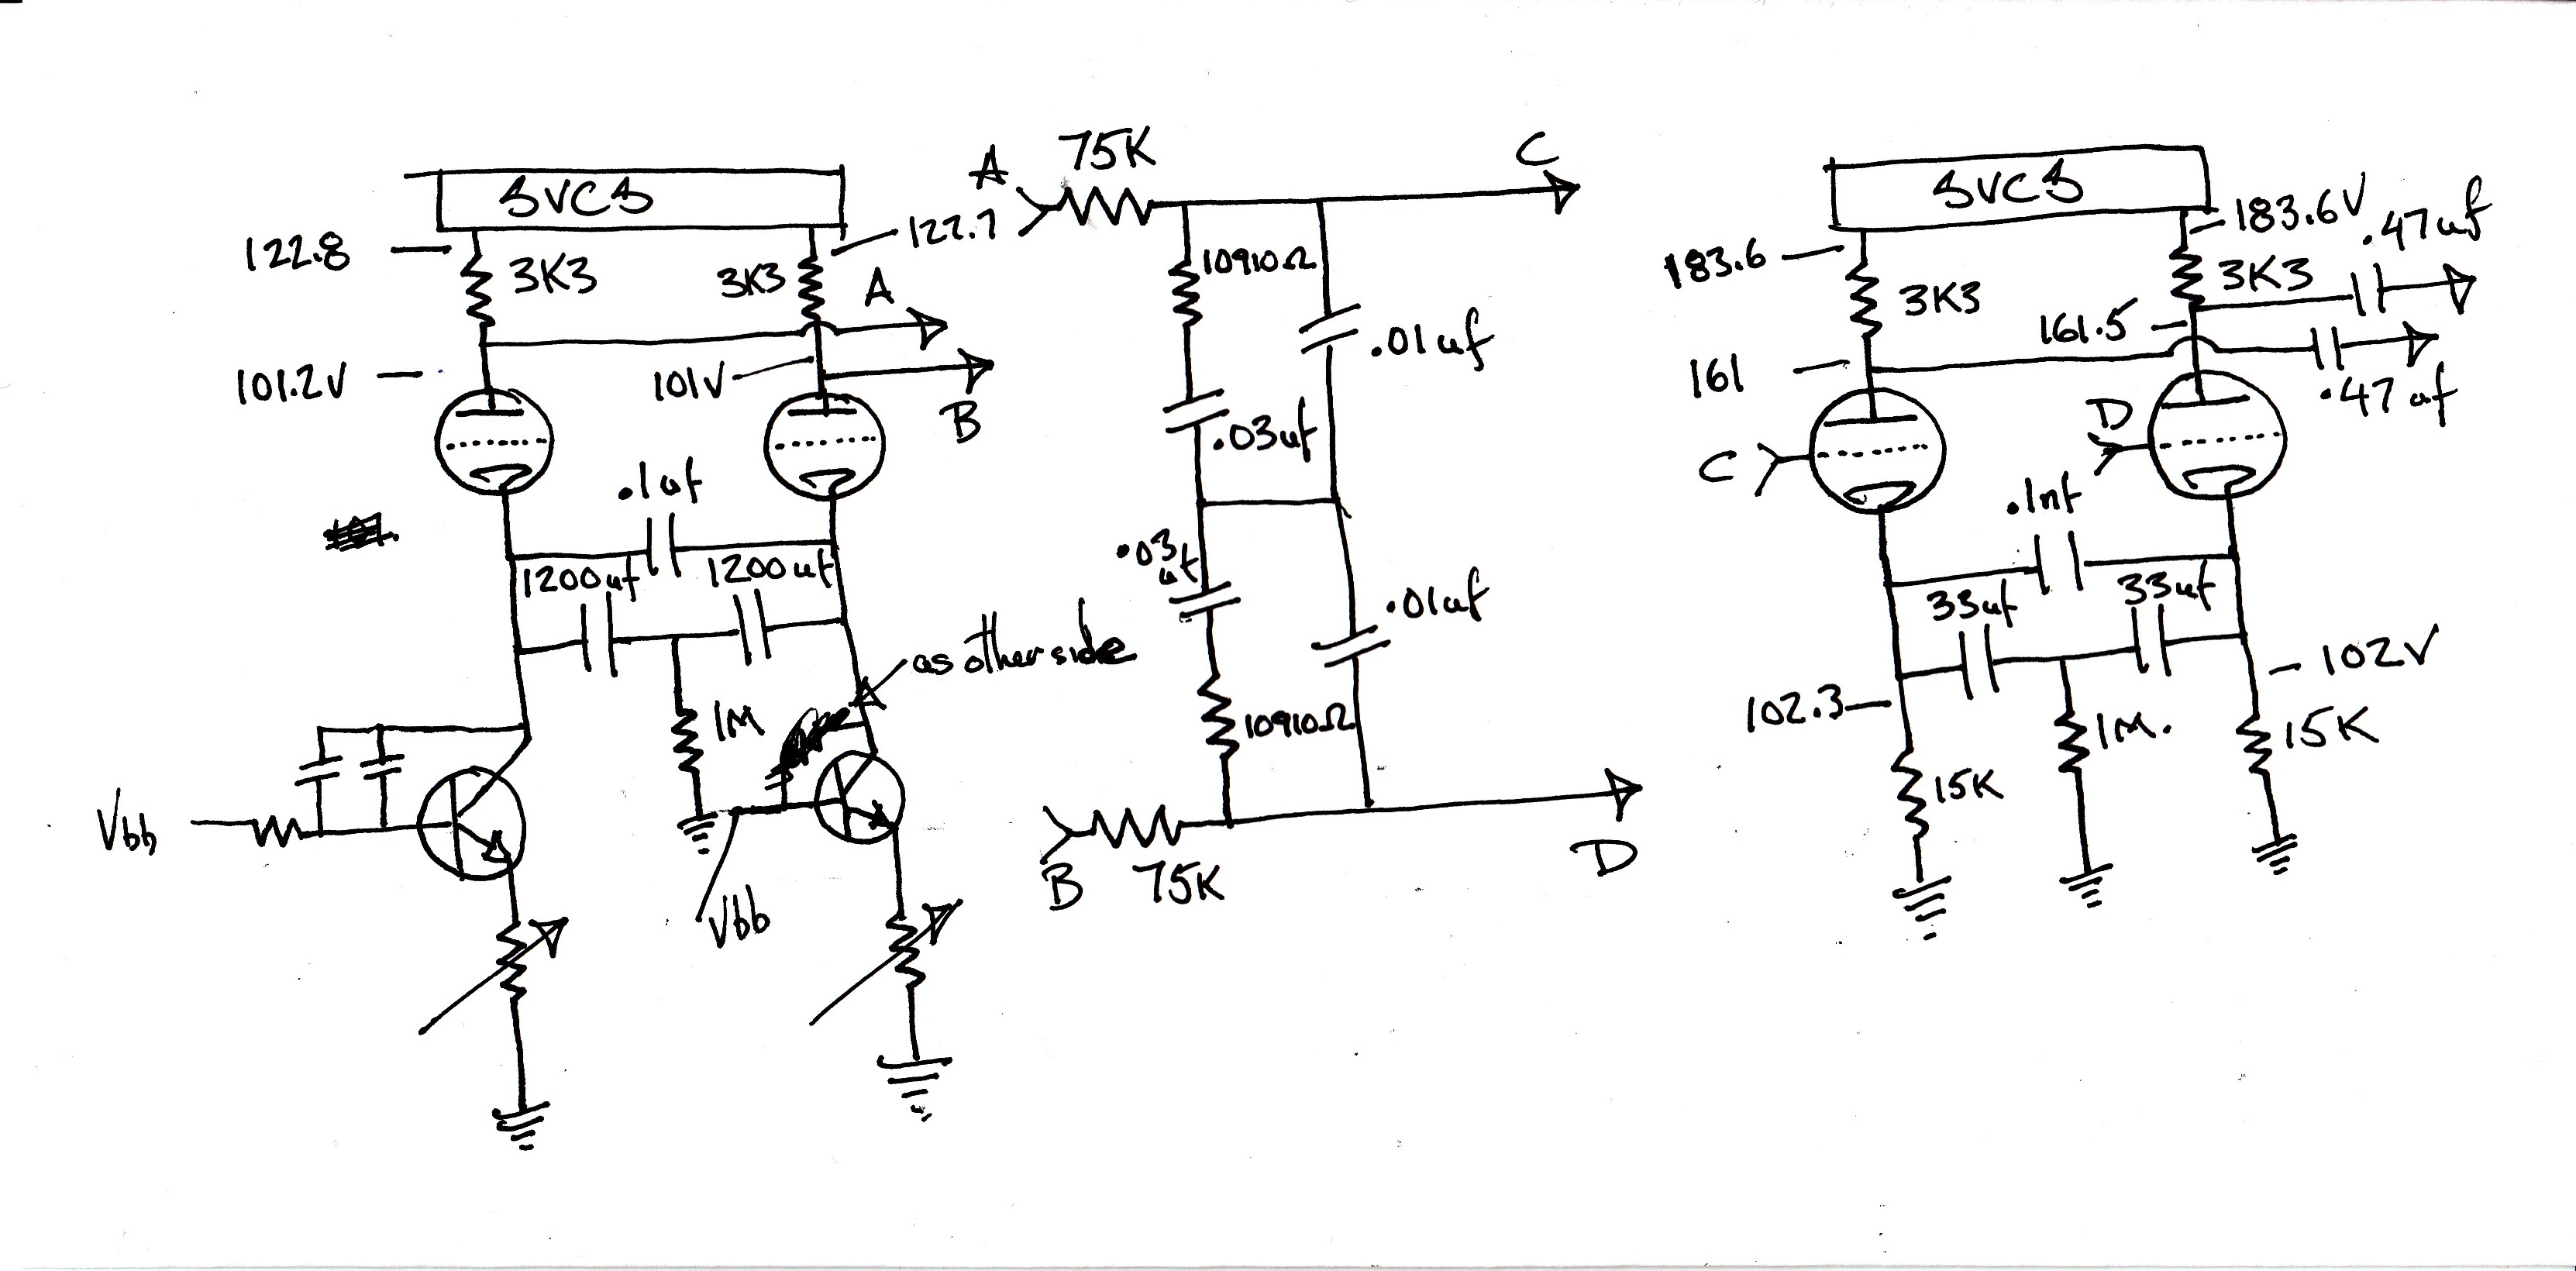 SVCS
122.8
3K3
3K3
122.7
A
101.2V
101V
B
.1uf
1200uf
1200uf
as other side
1M
Vbb
Vbb
A
75K
C
10910Ω
.01uf
.03uf
.03
uf
.01uf
10910Ω
B
75K
D
SVCS
183.6V
.47uf
183.6
3K3
3K3
161.5
161
.47uf
D
C
.1nf
33uf
33uf
102V
102.3
1M.
15K
15K